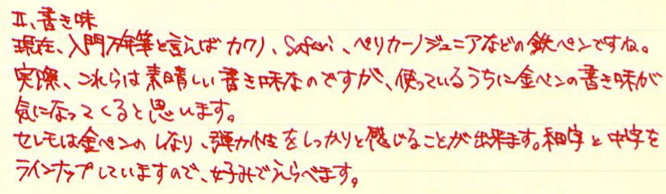 II、書き味
現在、入門万年筆と言えばカクノ、Safari、ペリカーノジュニアなどの鉄ペンですね。
実際、これらは素晴しい書き味なのですが、使っているうちに金ペンの書き味が
気になってくると思います。
セレモは金ペンのしなり、弾力性をしっかりと感じることが出来ます。細字と中字を
ラインナップしていますので、好みでえらべます。